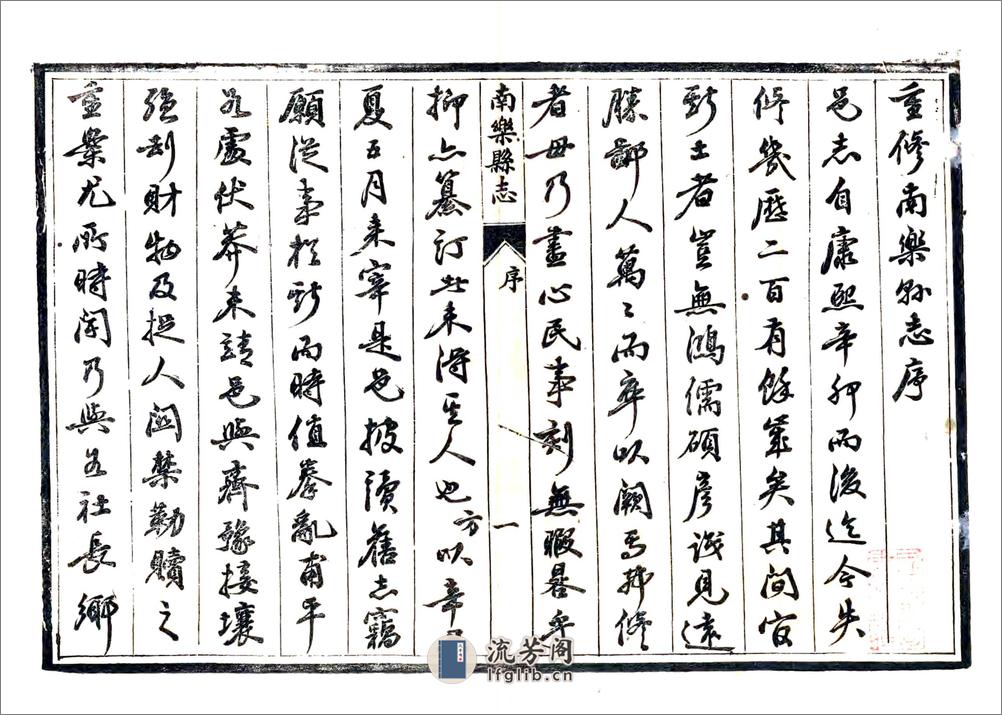 重修南樂縣志序
邑志自康熙辛卯而後迄今失
修幾歷二百有餘年矣其間官
斯土者豈無鴻儒碩彥識見遠
勝鄙人萬〻而卒以闕焉弗修
者毋乃盡心民事刻無暇晷乎
南樂縣志
序
一
抑亦纂訂者未得其人也方以辛
夏五月來宰是邑披讀舊志竊
願從事於斯而時值拳亂甫平
處伏莽未靖邑與齊豫接壤
強刦財物及捉人関禁勒贖之
重案尤所時聞乃與各社長鄉
流芳阁
lfglib.cn